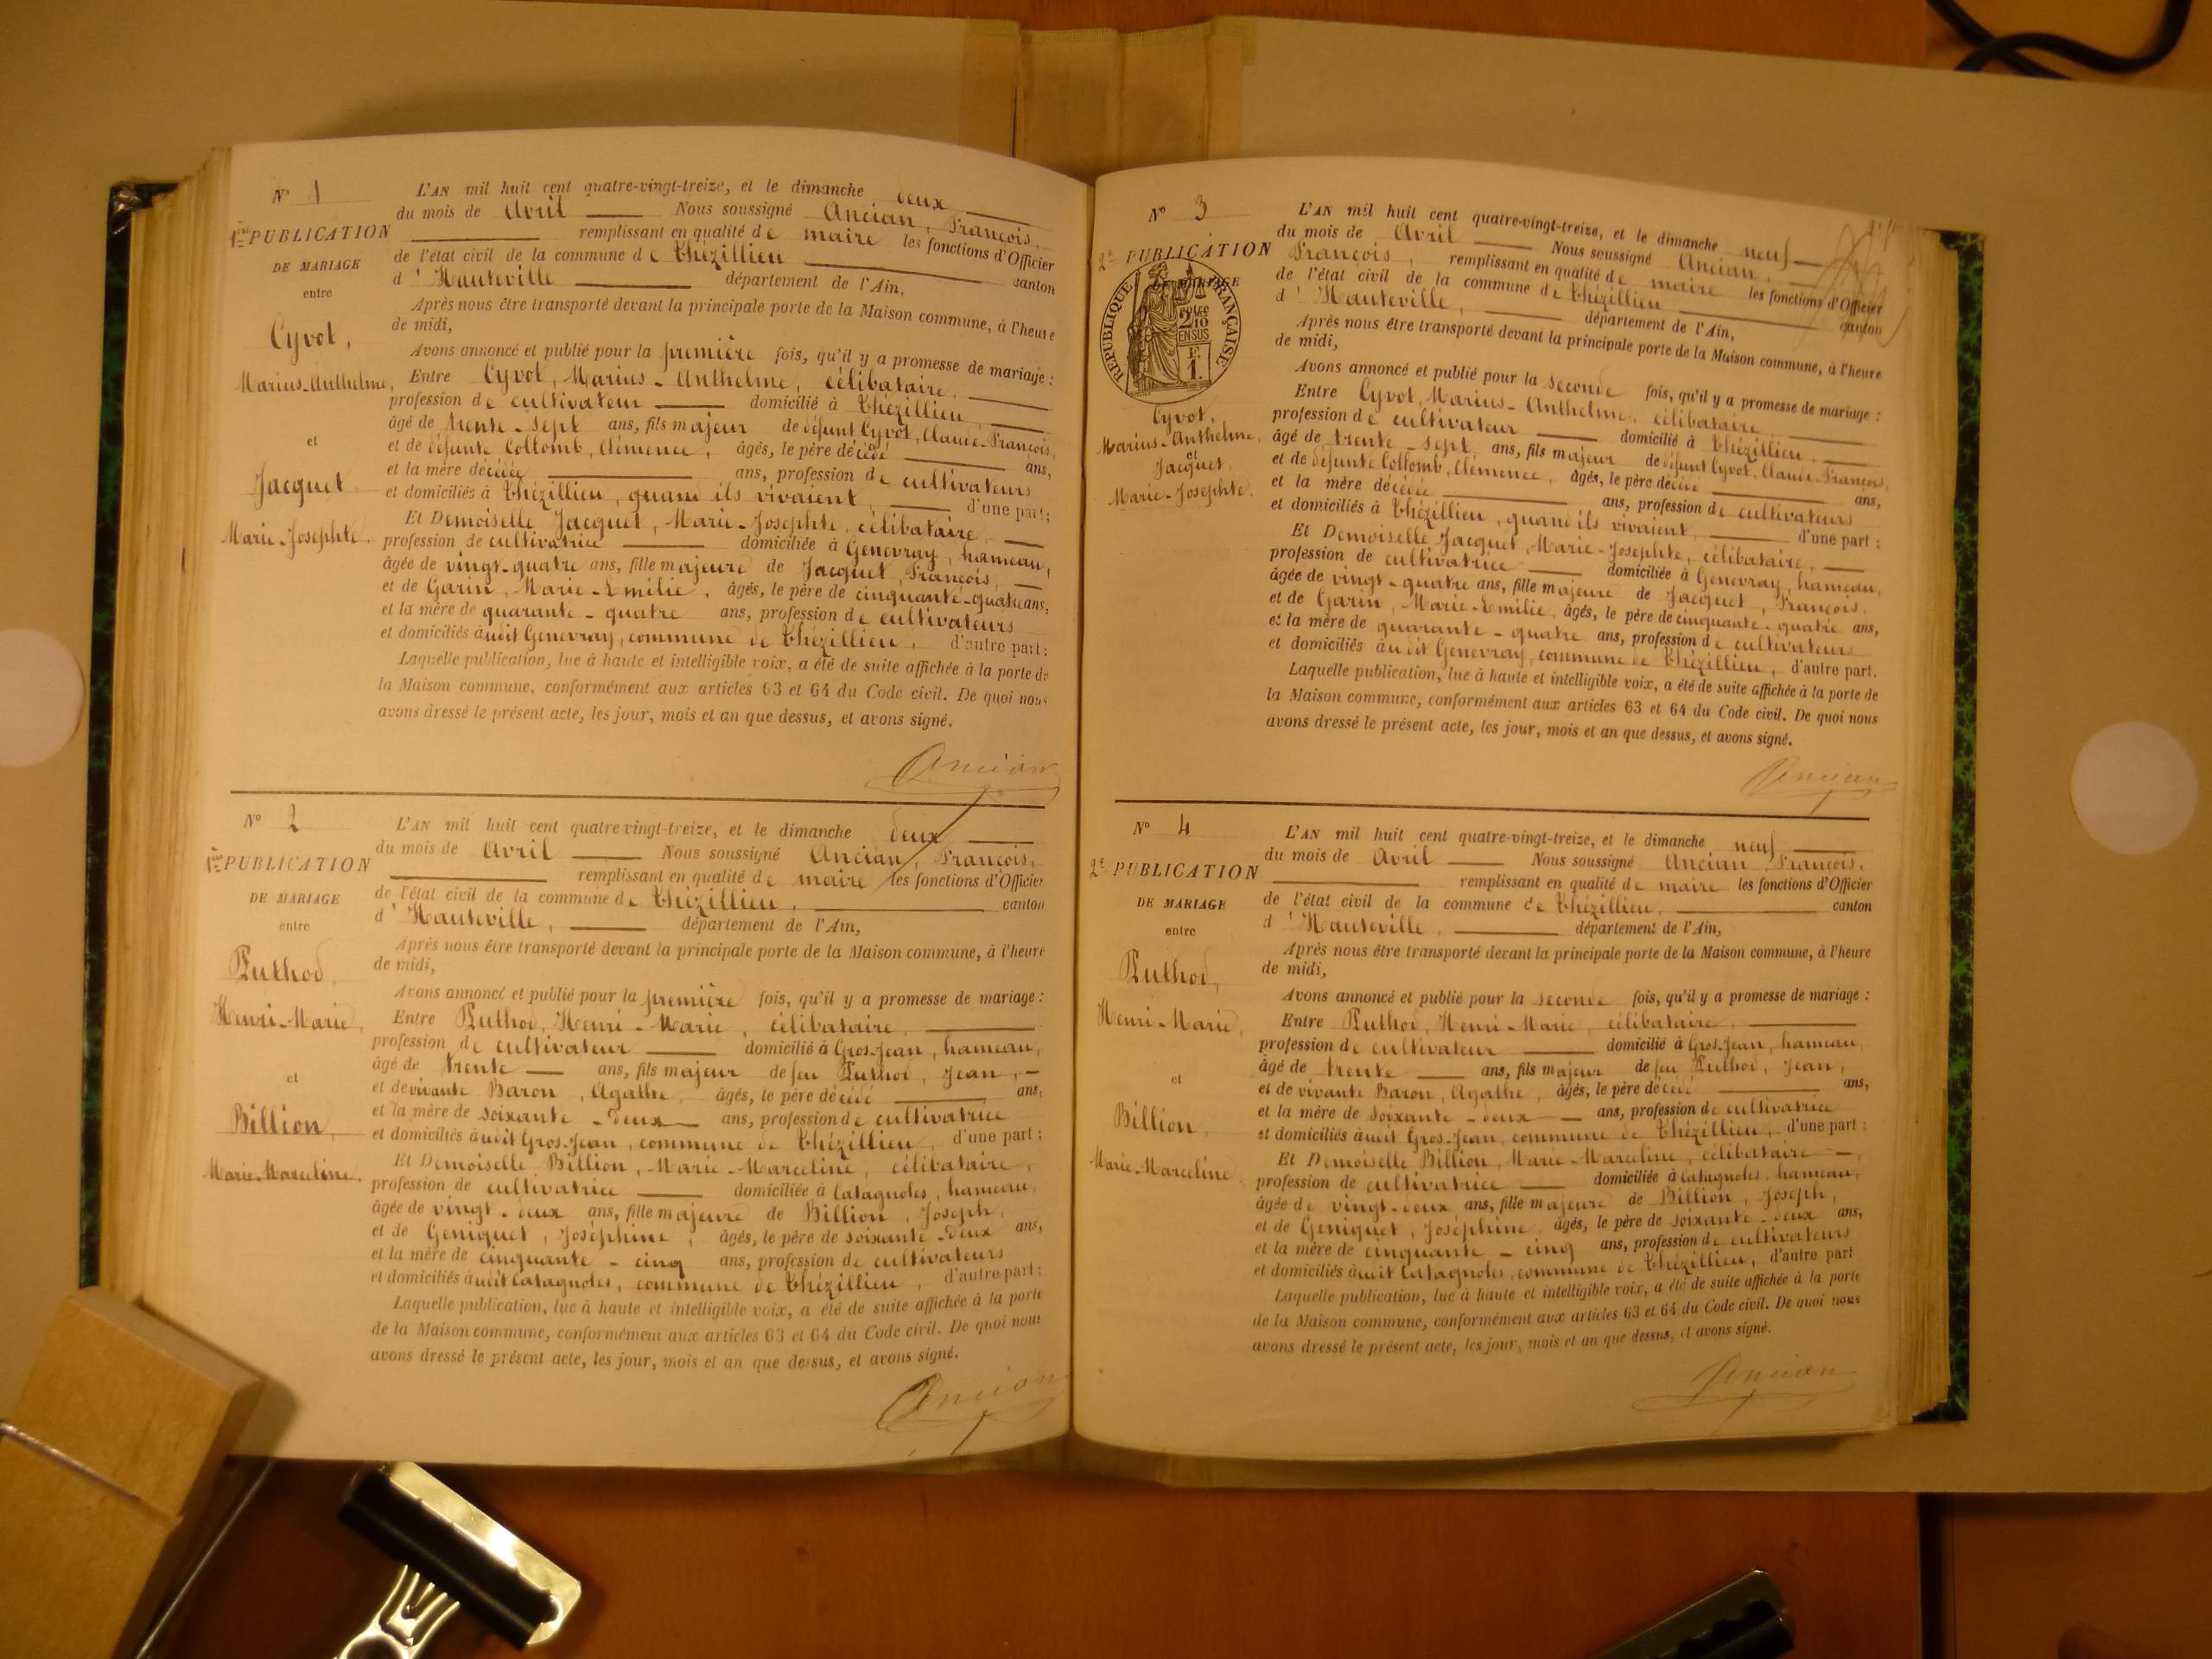 N° 1
1ère PUBLICATION
DE MARIAGE
entre
Cyvot,
Marius-Anthelme,
et
Jacquet
Marie-Josephte.
L'AN mil huit cent quatre-vingt-treize, et le dimanche deux
du mois de Avril Nous soussigné Ancian, François,
remplissant en qualité de maire les fonctions d'Officier
de l'état civil de la commune de Thézillieu canton
d'Hauteville département de l'Ain,
Après nous être transporté devant la principale porte de la Maison commune, à l'heure
de midi,
Avons annoncé et publié pour la première fois, qu'il y a promesse de mariage :
Entre Cyvot, Marius-Anthelme, célibataire,
profession de cultivateur domicilié à Thézillieu,
âgé de trente-sept ans, fils majeur de défunt Cyvot, Claude-François,
et de défunte Collomb, Clémence, âgés, le père décédé ans,
et la mère décédée ans, profession de cultivateurs
et domiciliés à Thézillieu, quand ils vivaient, d'une part;
Et Demoiselle Jacquet, Marie-Josephte, célibataire,
profession de cultivatrice domiciliée à Genevray, hameau,
âgée de vingt-quatre ans, fille majeure de Jacquet, François,
et de Garin, Marie-Emilie, âgés, le père de cinquante-quatre ans,
et la mère de quarante-quatre ans, profession de cultivateurs
et domiciliés audit Genevray, commune de Thézillieu, d'autre part:
Laquelle publication, lue à haute et intelligible voix, a été de suite affichée à la porte de
la Maison commune, conformément aux articles 63 et 64 du Code civil. De quoi nous
avons dressé le présent acte, les jour, mois et an que dessus, et avons signé.
Ancian
N° 2
1ère PUBLICATION
DE MARIAGE
entre
Puthod,
Henri-Marie,
et
Billion,
Marie-Marceline.
L'AN mil huit cent quatre-vingt-treize, et le dimanche deux
du mois de Avril Nous soussigné Ancian, François,
remplissant en qualité de maire les fonctions d'Officier
de l'état civil de la commune de Thézillieu, canton
d'Hauteville, département de l'Ain,
Après nous être transporté devant la principale porte de la Maison commune, à l'heure
de midi,
Avons annoncé et publié pour la première fois, qu'il y a promesse de mariage :
Entre Puthod, Henri-Marie, célibataire,
profession de cultivateur domicilié à Gros-Jean, hameau,
âgé de trente ans, fils majeur de feu Puthod, Jean,
et de vivante Baron, Agathe, âgés, le père décédé ans,
et la mère de soixante-deux ans, profession de cultivatrice
et domiciliés audit Gros-Jean, commune de Thézillieu, d'une part;
Et Demoiselle Billion, Marie-Marceline, célibataire,
profession de cultivatrice domiciliée à Catagnoles, hameau,
âgée de vingt-deux ans, fille majeure de Billion, Joseph,
et de Geniquet, Joséphine, âgés, le père de soixante-deux ans,
et la mère de cinquante-cinq ans, profession de cultivateurs
et domiciliés audit Catagnoles, commune de Thézillieu, d'autre part:
Laquelle publication, lue à haute et intelligible voix, a été de suite affichée à la porte
de la Maison commune, conformément aux articles 63 et 64 du Code civil. De quoi nous
avons dressé le présent acte, les jour, mois et an que dessus, et avons signé.
Ancian
N° 3
2e PUBLICATION
DE MARIAGE
RÉPUBLIQUE FRANÇAISE
2/10 EN SUS
F. 1.
Cyvot,
Marius-Anthelme,
et
Jacquet,
Marie-Josephte.
L'AN mil huit cent quatre-vingt-treize, et le dimanche neuf
du mois de Avril Nous soussigné Ancian,
François, remplissant en qualité de maire les fonctions d'Officier
de l'état civil de la commune de Thézillieu canton
d'Hauteville, département de l'Ain,
Après nous être transporté devant la principale porte de la Maison commune, à l'heure
de midi,
Avons annoncé et publié pour la seconde fois, qu'il y a promesse de mariage :
Entre Cyvot, Marius-Anthelme, célibataire,
profession de cultivateur domicilié à Thézillieu,
âgé de trente-sept ans, fils majeur de défunt Cyvot, Claude-François,
et de défunte Collomb, Clémence, âgés, le père décédé ans,
et la mère décédée ans, profession de cultivateurs
et domiciliés à Thézillieu, quand ils vivaient, d'une part;
Et Demoiselle Jacquet, Marie-Josephte, célibataire,
profession de cultivatrice domiciliée à Genevray, hameau,
âgée de vingt-quatre ans, fille majeure de Jacquet, François,
et de Garin, Marie-Emilie, âgés, le père de cinquante-quatre ans,
et la mère de quarante-quatre ans, profession de cultivateurs
et domiciliés audit Genevray, commune de Thézillieu, d'autre part.
Laquelle publication, lue à haute et intelligible voix, a été de suite affichée à la porte de
la Maison commune, conformément aux articles 63 et 64 du Code civil. De quoi nous
avons dressé le présent acte, les jour, mois et an que dessus, et avons signé.
Ancian
N° 4
2e PUBLICATION
DE MARIAGE
entre
Puthod,
Henri-Marie,
et
Billion,
Marie-Marceline
L'AN mil huit cent quatre-vingt-treize, et le dimanche neuf
du mois de Avril Nous soussigné Ancian, François,
remplissant en qualité de maire les fonctions d'Officier
de l'état civil de la commune de Thézillieu, canton
d'Hauteville, département de l'Ain,
Après nous être transporté devant la principale porte de la Maison commune, à l'heure
de midi,
Avons annoncé et publié pour la seconde fois, qu'il y a promesse de mariage :
Entre Puthod, Henri-Marie, célibataire,
profession de cultivateur domicilié à Gros-Jean, hameau,
âgé de trente ans, fils majeur de feu Puthod, Jean,
et de vivante Baron, Agathe, âgés, le père décédé ans,
et la mère de soixante-deux ans, profession de cultivatrice
et domiciliés audit Gros-Jean, commune de Thézillieu, d'une part;
Et Demoiselle Billion, Marie-Marceline, célibataire,
profession de cultivatrice domiciliée à Catagnoles, hameau,
âgée de vingt-deux ans, fille majeure de Billion, Joseph,
et de Geniquet, Joséphine, âgés, le père de soixante-deux ans,
et la mère de cinquante-cinq ans, profession de cultivateurs
et domiciliés audit Catagnoles, commune de Thézillieu, d'autre part
Laquelle publication, lue à haute et intelligible voix, a été de suite affichée à la porte
de la Maison commune, conformément aux articles 63 et 64 du Code civil. De quoi nous
avons dressé le présent acte, les jour, mois et an que dessus, et avons signé.
Ancian